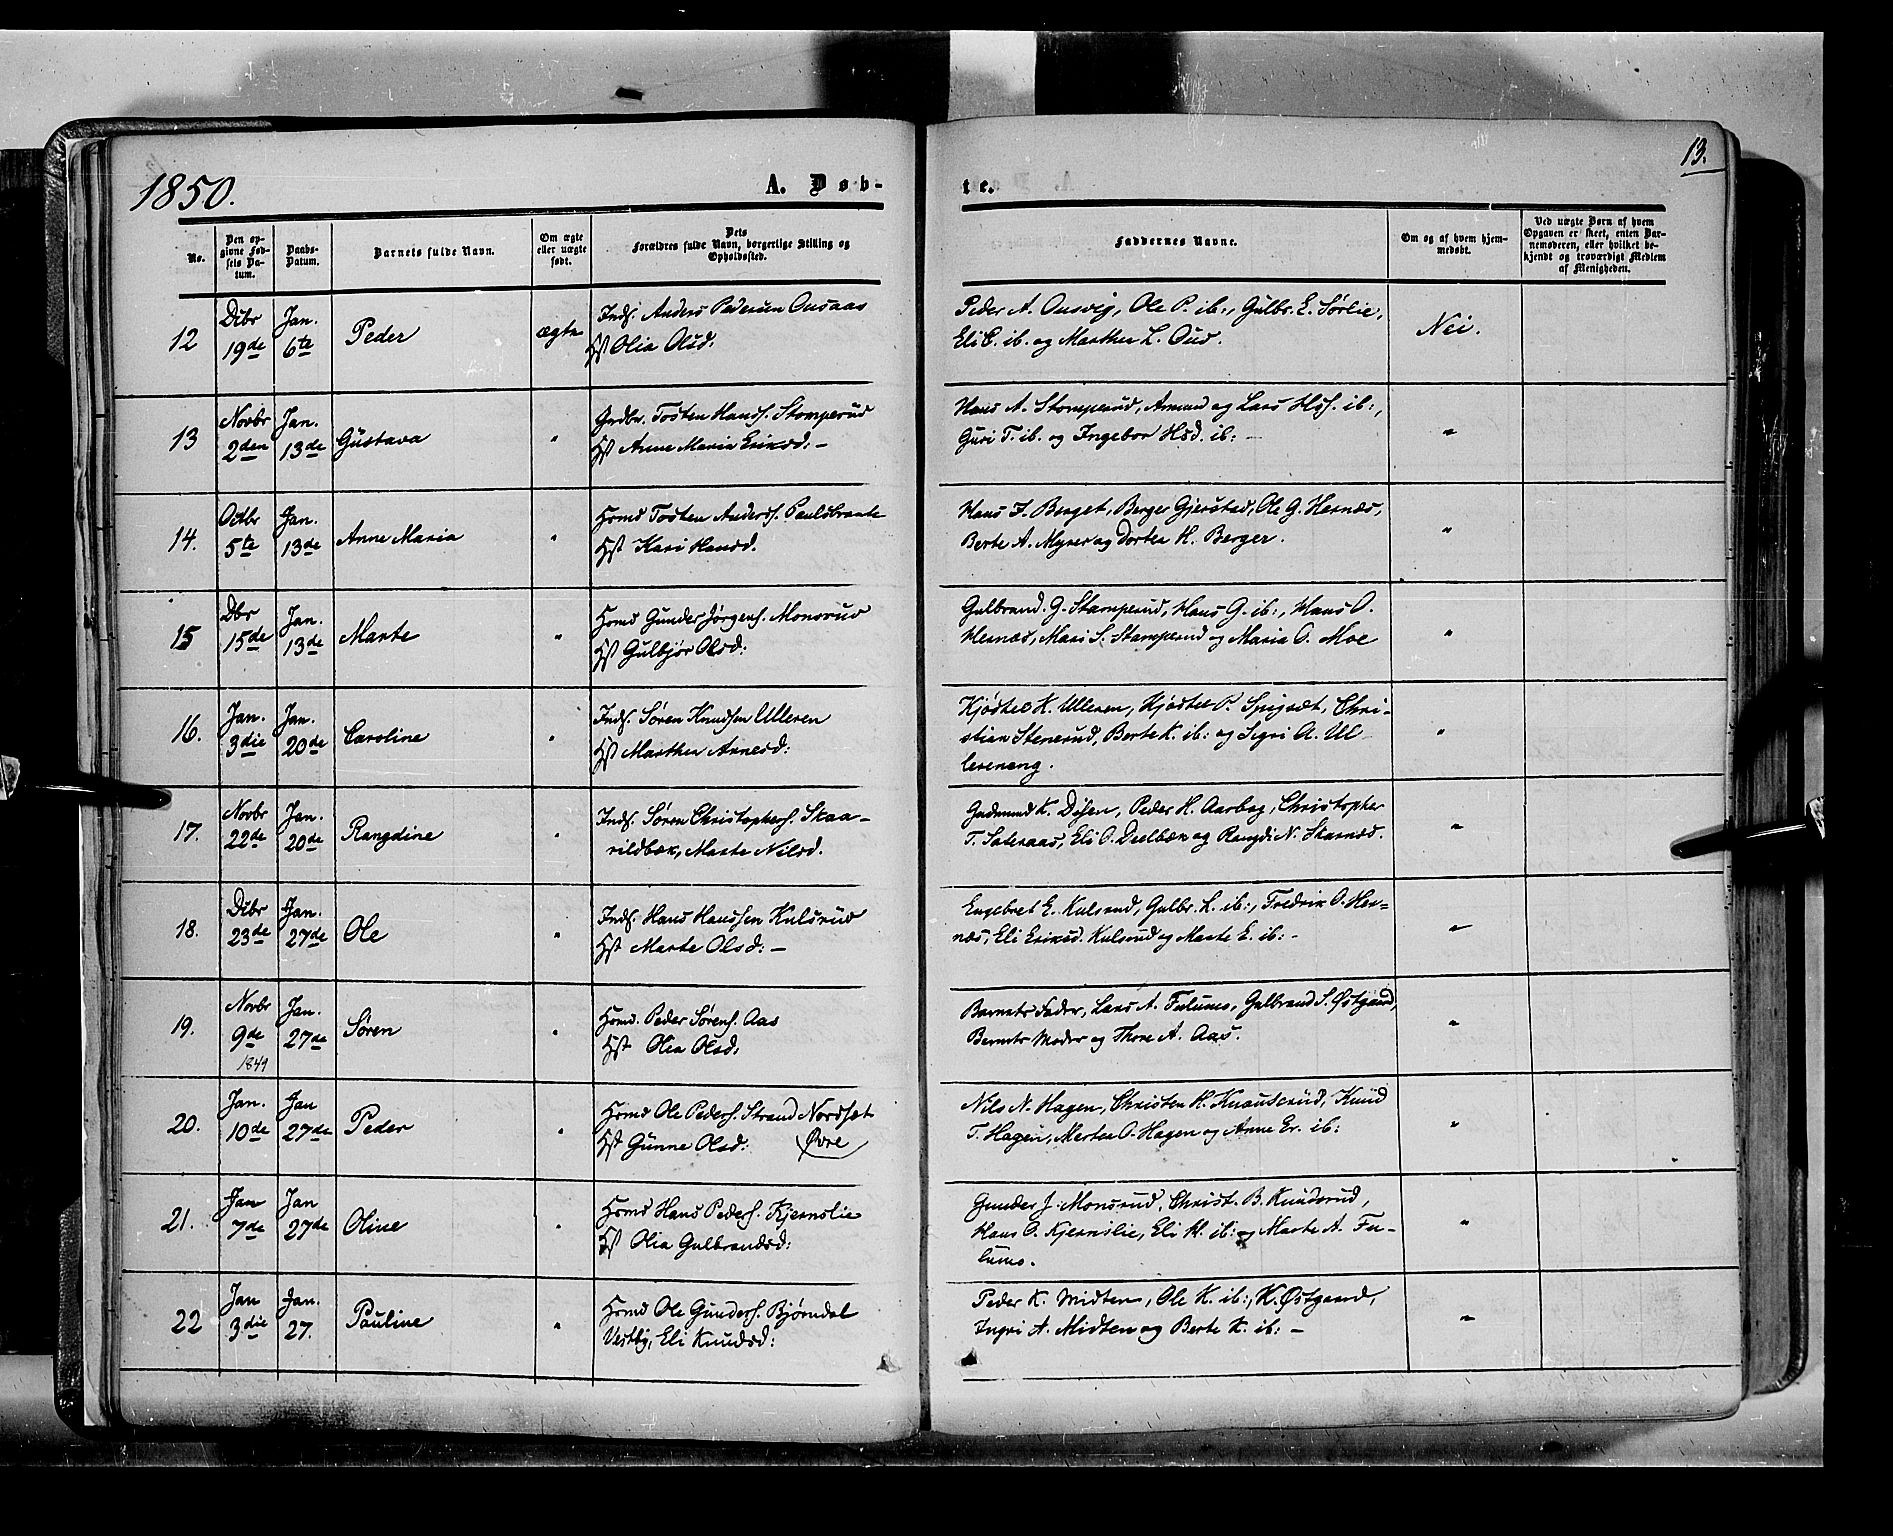 1850.
A. Døb-
te.
13.
No.
Den op-
givne Fød-
sels Da-
tum.
Daabs-
Datum.
Barnets fulde Navn.
Om ægte
eller uægte
født.
Dets
Forældres fulde Navn, borgerlige Stilling og
Opholdssted.
Faddernes Navne.
Om og af hvem hjem-
medøbt.
Ved uægte Børn af hvem
Opgaven er skeet, enten Bar-
nemoderen, eller hvilket be-
kjendt og troværdigt Medlem
af Menigheden.
12 Dcbr 19de Jan. 6te Peder ægte
Inds. Anders Pedersen Ousaas
Hst Olia Olsd:
Peder A. Ousvig, Ole P. ib:, Gulbr. E. Sørlie,
Eli C. ib. og Marthea L. Oud.
Nei.
13 Novbr 2den Jan. 13de Gustava "
Grdbr. Tosten Hans. Stomperud
Hst Anne Maria Eriksd: -
Hans A. Stomperud, Amund og Lars Hs. ib:,
Guri T. ib. og Ingebor Hsd. ib: -
"
14. Octbr 5te Jan. 13de Anne Maria "
Hsmd Tosten Anders. Paulsbraate
Hst Kari Hansd.
Hans J. Berget, Berger Gjerstad, Ole G. Hernæs,
Berte A. Myrer og Dortea H. Berger.
"
15 Dbr 15de Jan. 13de Marte "
Hsmd Gunder Jørgens. Monsrud
Hst Gulbjør Olsd:
Gulbrand. G. Stamperud, Hans G. ib:, Hans O.
Hernæs, Mari S. Stamperud og Maria O. Moe
"
16. Jan. 3die Jan. 20de Caroline "
Inds. Søren Knudsen Ulleren
Hst Marthea Arnesd:
Kjøstel K. Ulleren, Kjøstel P. Spigset, Chri-
stian Stenerud, Berte K. ib: og Sigri A. Ul
lereneng.
"
17. Novbr 22de Jan. 20de Rangdine "
Inds. Søren Christophers. Skaa-
rildbæk, Marte Nilsd.
Gudmund K. Dysen, Peder H. Aarbog, Christopher
T. Sateraas, Eli O. Deelbæk og Rangdi N. Skarnæs.
"
18. Dcbr 23de Jan. 27de Ole "
Inds. Hans Hanssen Kulsrud
Hst Marte Olsd: -
Engebret E. Kulsrud, Gulbr. L. ib:, Fredrik O. Her-
næs, Eli Eriksd. Kulsrud og Marte E. ib: -
"
19. Novbr 9de 1849 Jan. 27de Søren "
Hsmd. Peder Sørens. Aas
Hst Olia Olsd:
Barnets Fader, Lars A. Fulums, Gulbrand S. Østgaard,
Barnets Moder og Thore A. Aas.
"
20. Jan. 10de Jan 27de Peder "
Hsmd Ole Peders. Strand Nordset
Hst Gunne Olsd: Øvre
Nils N. Hagen, Christen H. Knauserud, Knud
T. Hagen, Mertea O. Hagen og Anne Er. ib:
"
21. Jan 7de Jan 27de Oline "
Hsmd Hans Peders. Kjernslie
Hst Olia Gulbrandsd:
Gunder J. Monsrud, Christ. B. Knudsrud,
Hans O. Kjernslie, Eli H. ib: og Marte A. Fu-
lums.
"
22 Jan 3die Jan. 27. Pauline "
Hsmd Ole Gunders. Bjørndal
Vestby, Eli Knudsd:
Peder K. Midten, Ole K. ib:, K. Østgaard,
Ingri A. Midten og Berte K. ib: -
"